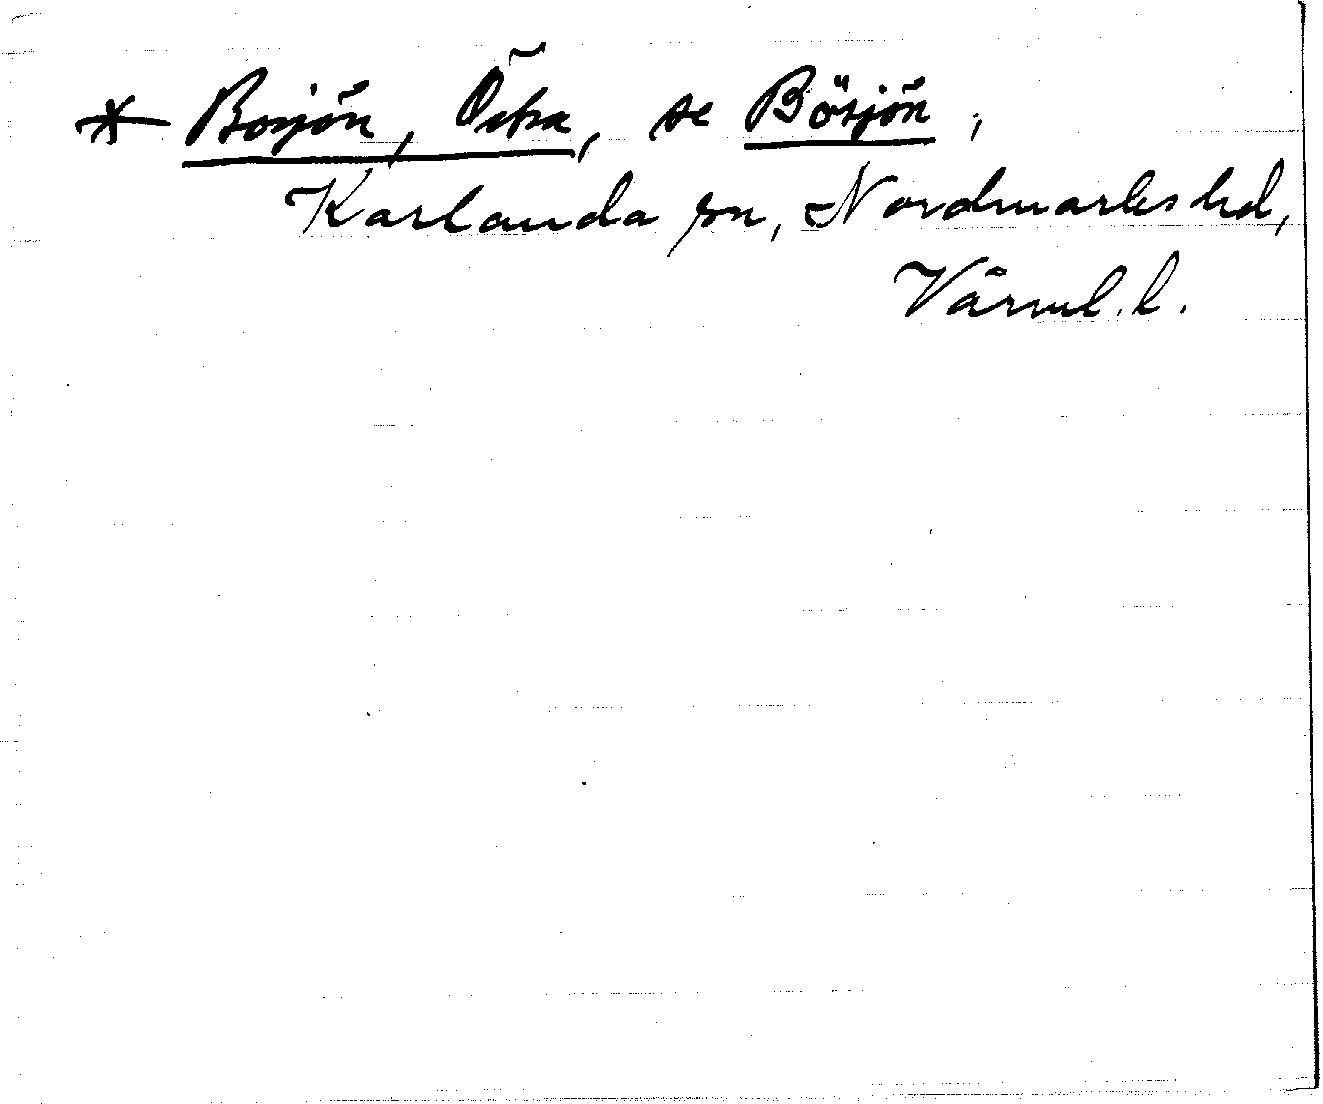 * Bosjön, Östra, se Bösjön,
Karlanda sn, Nordmarks hd,
Värml. l.